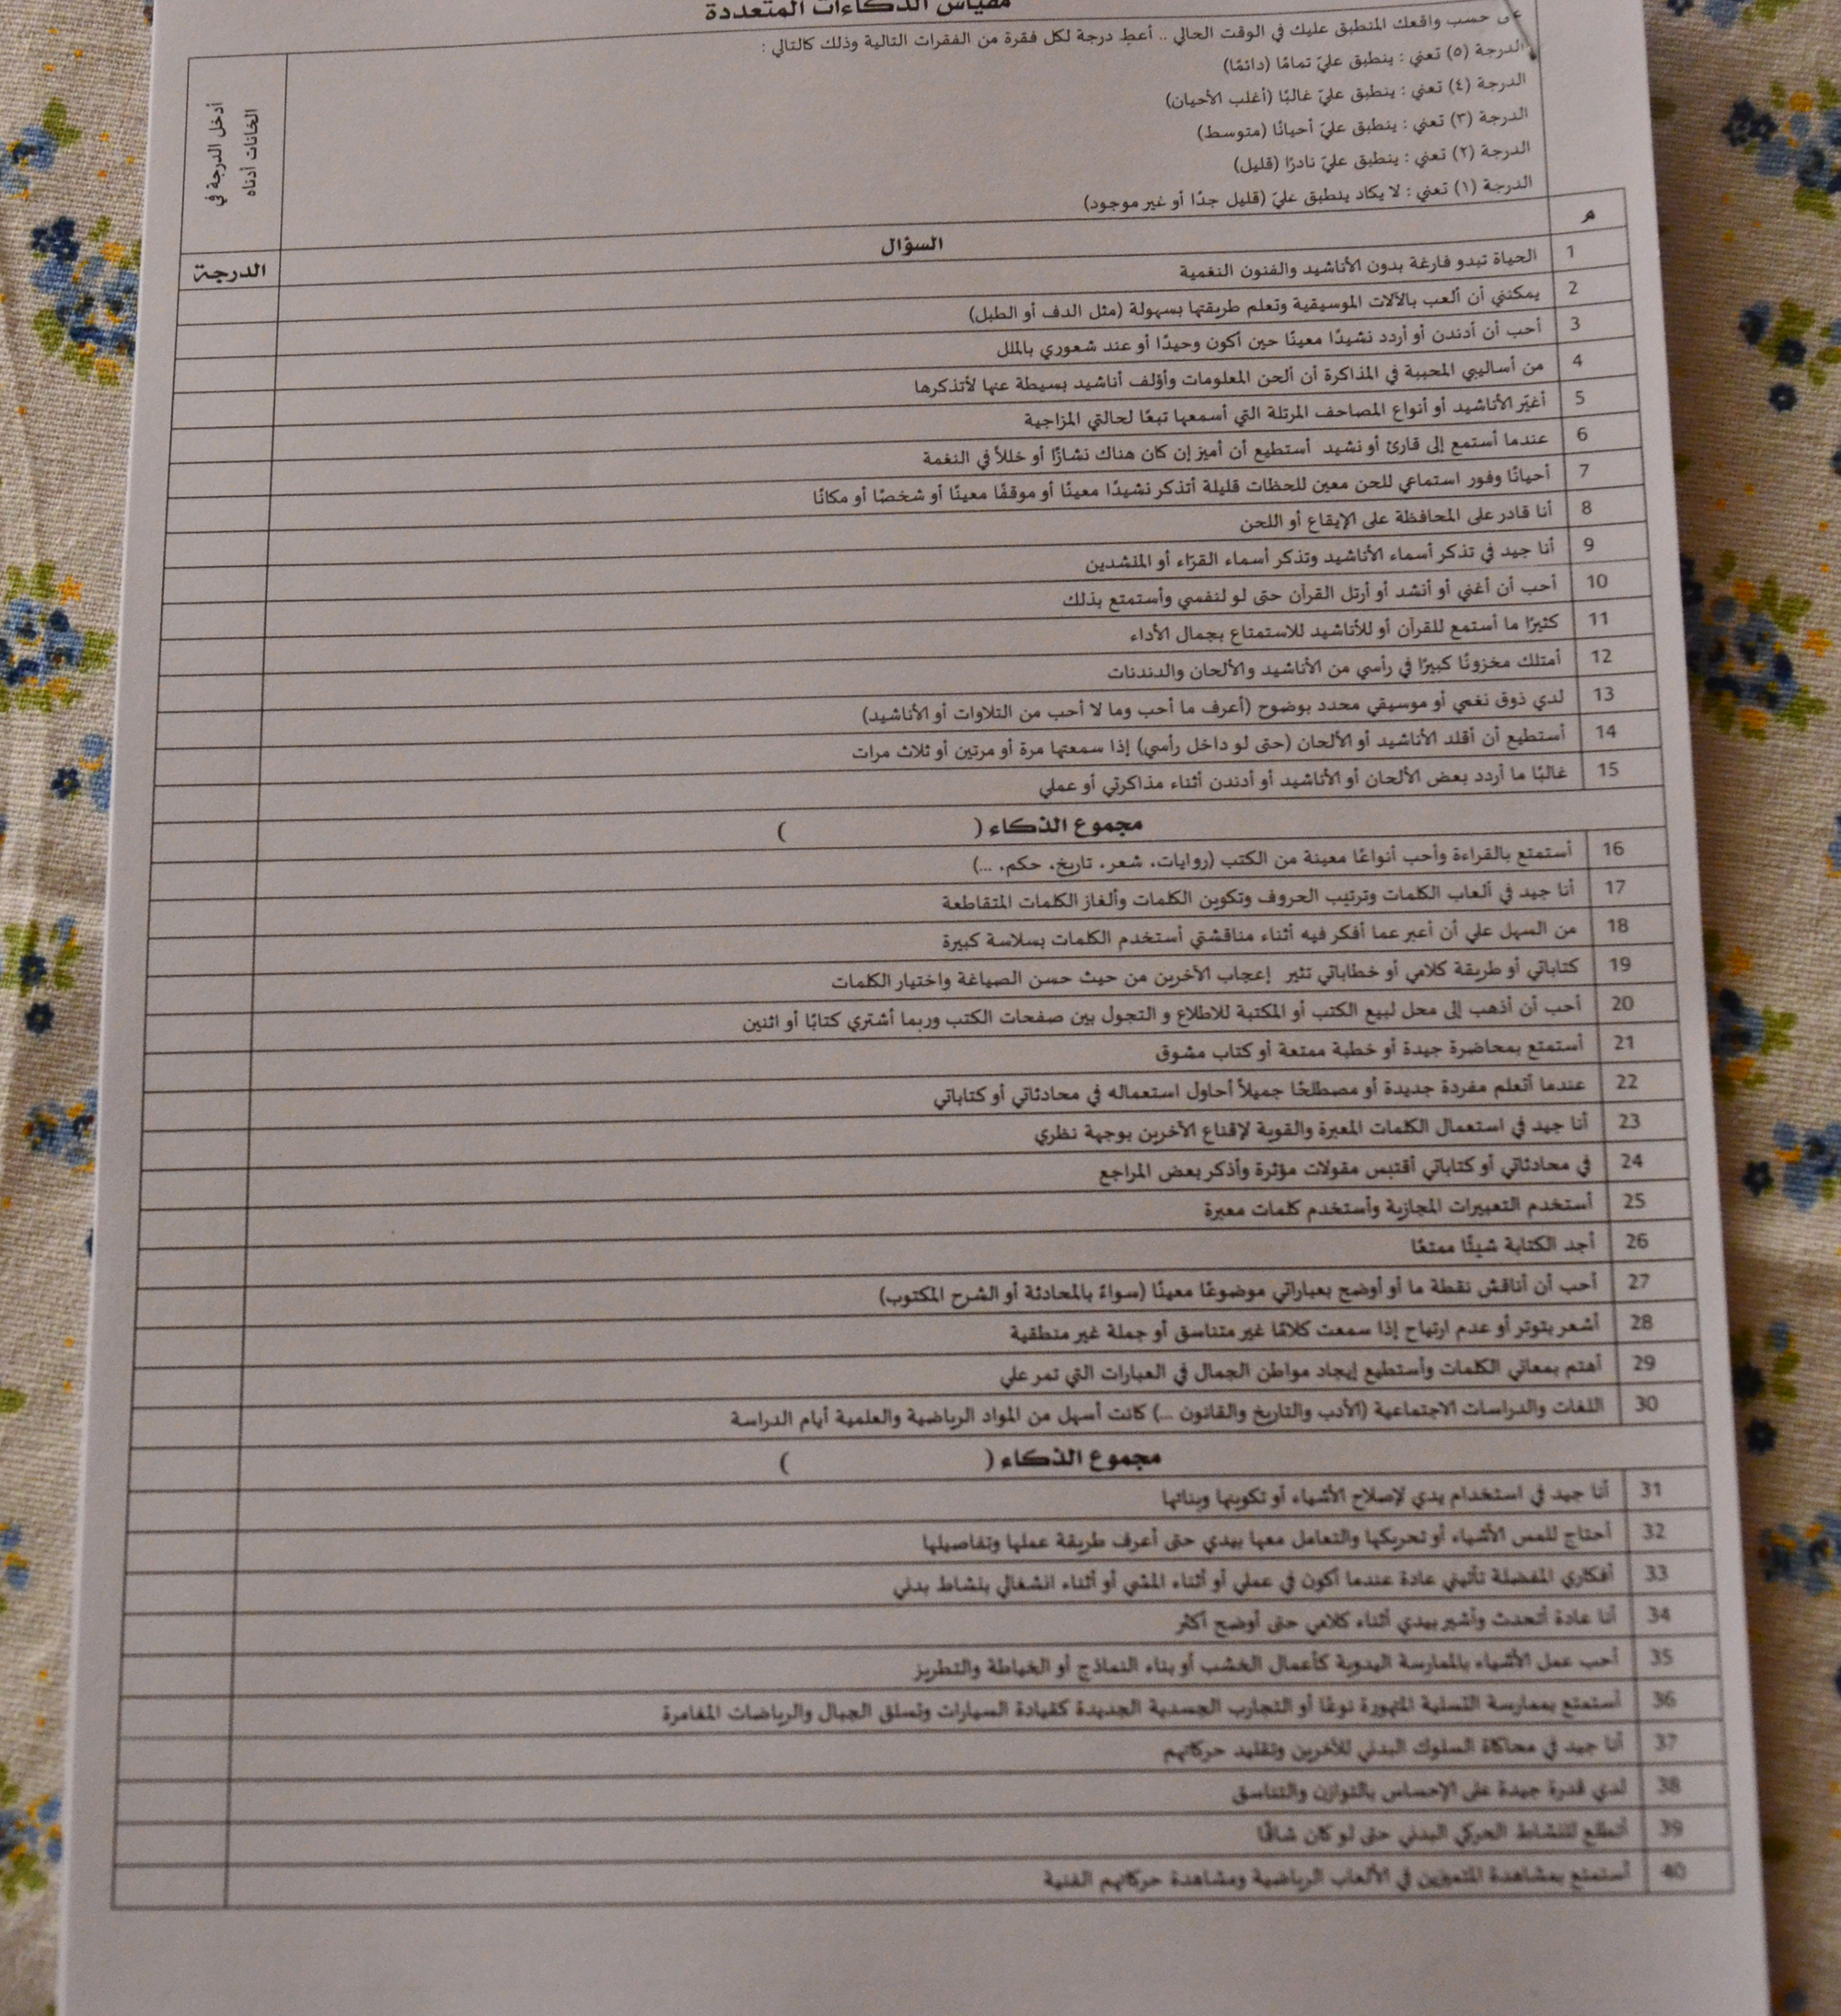 مقياس الذكاءات المتعددة
على حسب واقعك المنطبق عليك في الوقت الحالي .. أعطِ درجة لكل فقرة من الفقرات التالية وذلك كالتالي :
الدرجة (٥) تعني : ينطبق عليّ تمامًا (دائمًا)
الدرجة (٤) تعني : ينطبق عليّ غالبًا (أغلب الأحيان)
الدرجة (٣) تعني : ينطبق عليّ أحيانًا (متوسط)
الدرجة (٢) تعني : ينطبق عليّ نادرًا (قليل)
الدرجة (١) تعني : لا يكاد ينطبق عليّ (قليل جدًا أو غير موجود)
أدخل الدرجة في
الخانات أدناه
م السؤال الدرجة
1 الحياة تبدو فارغة بدون الأناشيد والفنون النغمية
2 يمكنني أن ألعب بالآلات الموسيقية وتعلم طريقتها بسهولة (مثل الدف أو الطبل)
3 أحب أن أدندن أو أردد نشيدًا معينًا حين أكون وحيدًا أو عند شعوري بالملل
4 من أساليبي المحببة في المذاكرة أن ألحن المعلومات وأؤلف أناشيد بسيطة عنها لأتذكرها
5 أغيّر الأناشيد أو أنواع المصاحف المرتلة التي أسمعها تبعًا لحالتي المزاجية
6 عندما أستمع إلى قارئ أو نشيد أستطيع أن أميز إن كان هناك نشازًا أو خللاً في النغمة
7 أحيانًا وفور استماعي للحن معين للحظات قليلة أتذكر نشيدًا معينًا أو موقفًا معينًا أو شخصًا أو مكانًا
8 أنا قادر على المحافظة على الإيقاع أو اللحن
9 أنا جيد في تذكر أسماء الأناشيد وتذكر أسماء القرّاء أو المنشدين
10 أحب أن أغني أو أنشد أو أرتل القرآن حتى لو لنفسي وأستمتع بذلك
11 كثيرًا ما أستمع للقرآن أو للأناشيد للاستمتاع بجمال الأداء
12 أمتلك مخزونًا كبيرًا في رأسي من الأناشيد والألحان والدندنات
13 لدي ذوق نغمي أو موسيقي محدد بوضوح (أعرف ما أحب وما لا أحب من التلاوات أو الأناشيد)
14 أستطيع أن أقلد الأناشيد أو الألحان (حتى لو داخل رأسي) إذا سمعتها مرة أو مرتين أو ثلاث مرات
15 غالبًا ما أردد بعض الألحان أو الأناشيد أو أدندن أثناء مذاكرتي أو عملي
مجموع الذكاء ( )
16 أستمتع بالقراءة وأحب أنواعًا معينة من الكتب (روايات، شعر، تاريخ، حكم، ...)
17 أنا جيد في ألعاب الكلمات وترتيب الحروف وتكوين الكلمات وألغاز الكلمات المتقاطعة
18 من السهل علي أن أعبر عما أفكر فيه أثناء مناقشتي أستخدم الكلمات بسلاسة كبيرة
19 كتاباتي أو طريقة كلامي أو خطاباتي تثير إعجاب الآخرين من حيث حسن الصياغة واختيار الكلمات
20 أحب أن أذهب إلى محل لبيع الكتب أو المكتبة للاطلاع و التجول بين صفحات الكتب وربما أشتري كتابًا أو اثنين
21 أستمتع بمحاضرة جيدة أو خطبة ممتعة أو كتاب مشوق
22 عندما أتعلم مفردة جديدة أو مصطلحًا جميلاً أحاول استعماله في محادثاتي أو كتاباتي
23 أنا جيد في استعمال الكلمات المعبرة والقوية لإقناع الآخرين بوجهة نظري
24 في محادثاتي أو كتاباتي أقتبس مقولات مؤثرة وأذكر بعض المراجع
25 أستخدم التعبيرات المجازية وأستخدم كلمات معبرة
26 أجد الكتابة شيئًا ممتعًا
27 أحب أن أناقش نقطة ما أو أوضح بعباراتي موضوعًا معينًا (سواءً بالمحادثة أو الشرح المكتوب)
28 أشعر بتوتر أو عدم ارتياح إذا سمعت كلامًا غير متناسق أو جملة غير منطقية
29 أهتم بمعاني الكلمات وأستطيع إيجاد مواطن الجمال في العبارات التي تمر علي
30 اللغات والدراسات الاجتماعية (الأدب والتاريخ والقانون ...) كانت أسهل من المواد الرياضية والعلمية أيام الدراسة
مجموع الذكاء ( )
31 أنا جيد في استخدام يدي لإصلاح الأشياء أو تكوينها وبنائها
32 أحتاج للمس الأشياء أو تحريكها والتعامل معها بيدي حتى أعرف طريقة عملها وتفاصيلها
33 أفكاري المفضلة تأتيني عادة عندما أكون في عملي أو أثناء المشي أو أثناء انشغالي بنشاط بدني
34 أنا عادة أتحدث وأشير بيدي أثناء كلامي حتى أوضح أكثر
35 أحب عمل الأشياء بالممارسة اليدوية كأعمال الخشب أو بناء النماذج أو الخياطة والتطريز
36 أستمتع بممارسة التسلية المتهورة نوعًا أو التجارب الجسدية الجديدة كقيادة السيارات وتسلق الجبال والرياضات المغامرة
37 أنا جيد في محاكاة السلوك البدني للآخرين وتقليد حركاتهم
38 لدي قدرة جيدة على الإحساس بالتوازن والتناسق
39 أتطلع للنشاط الحركي البدني حتى لو كان شاقًا
40 أستمتع بمشاهدة المتميزين في الألعاب الرياضية ومشاهدة حركاتهم الفنية